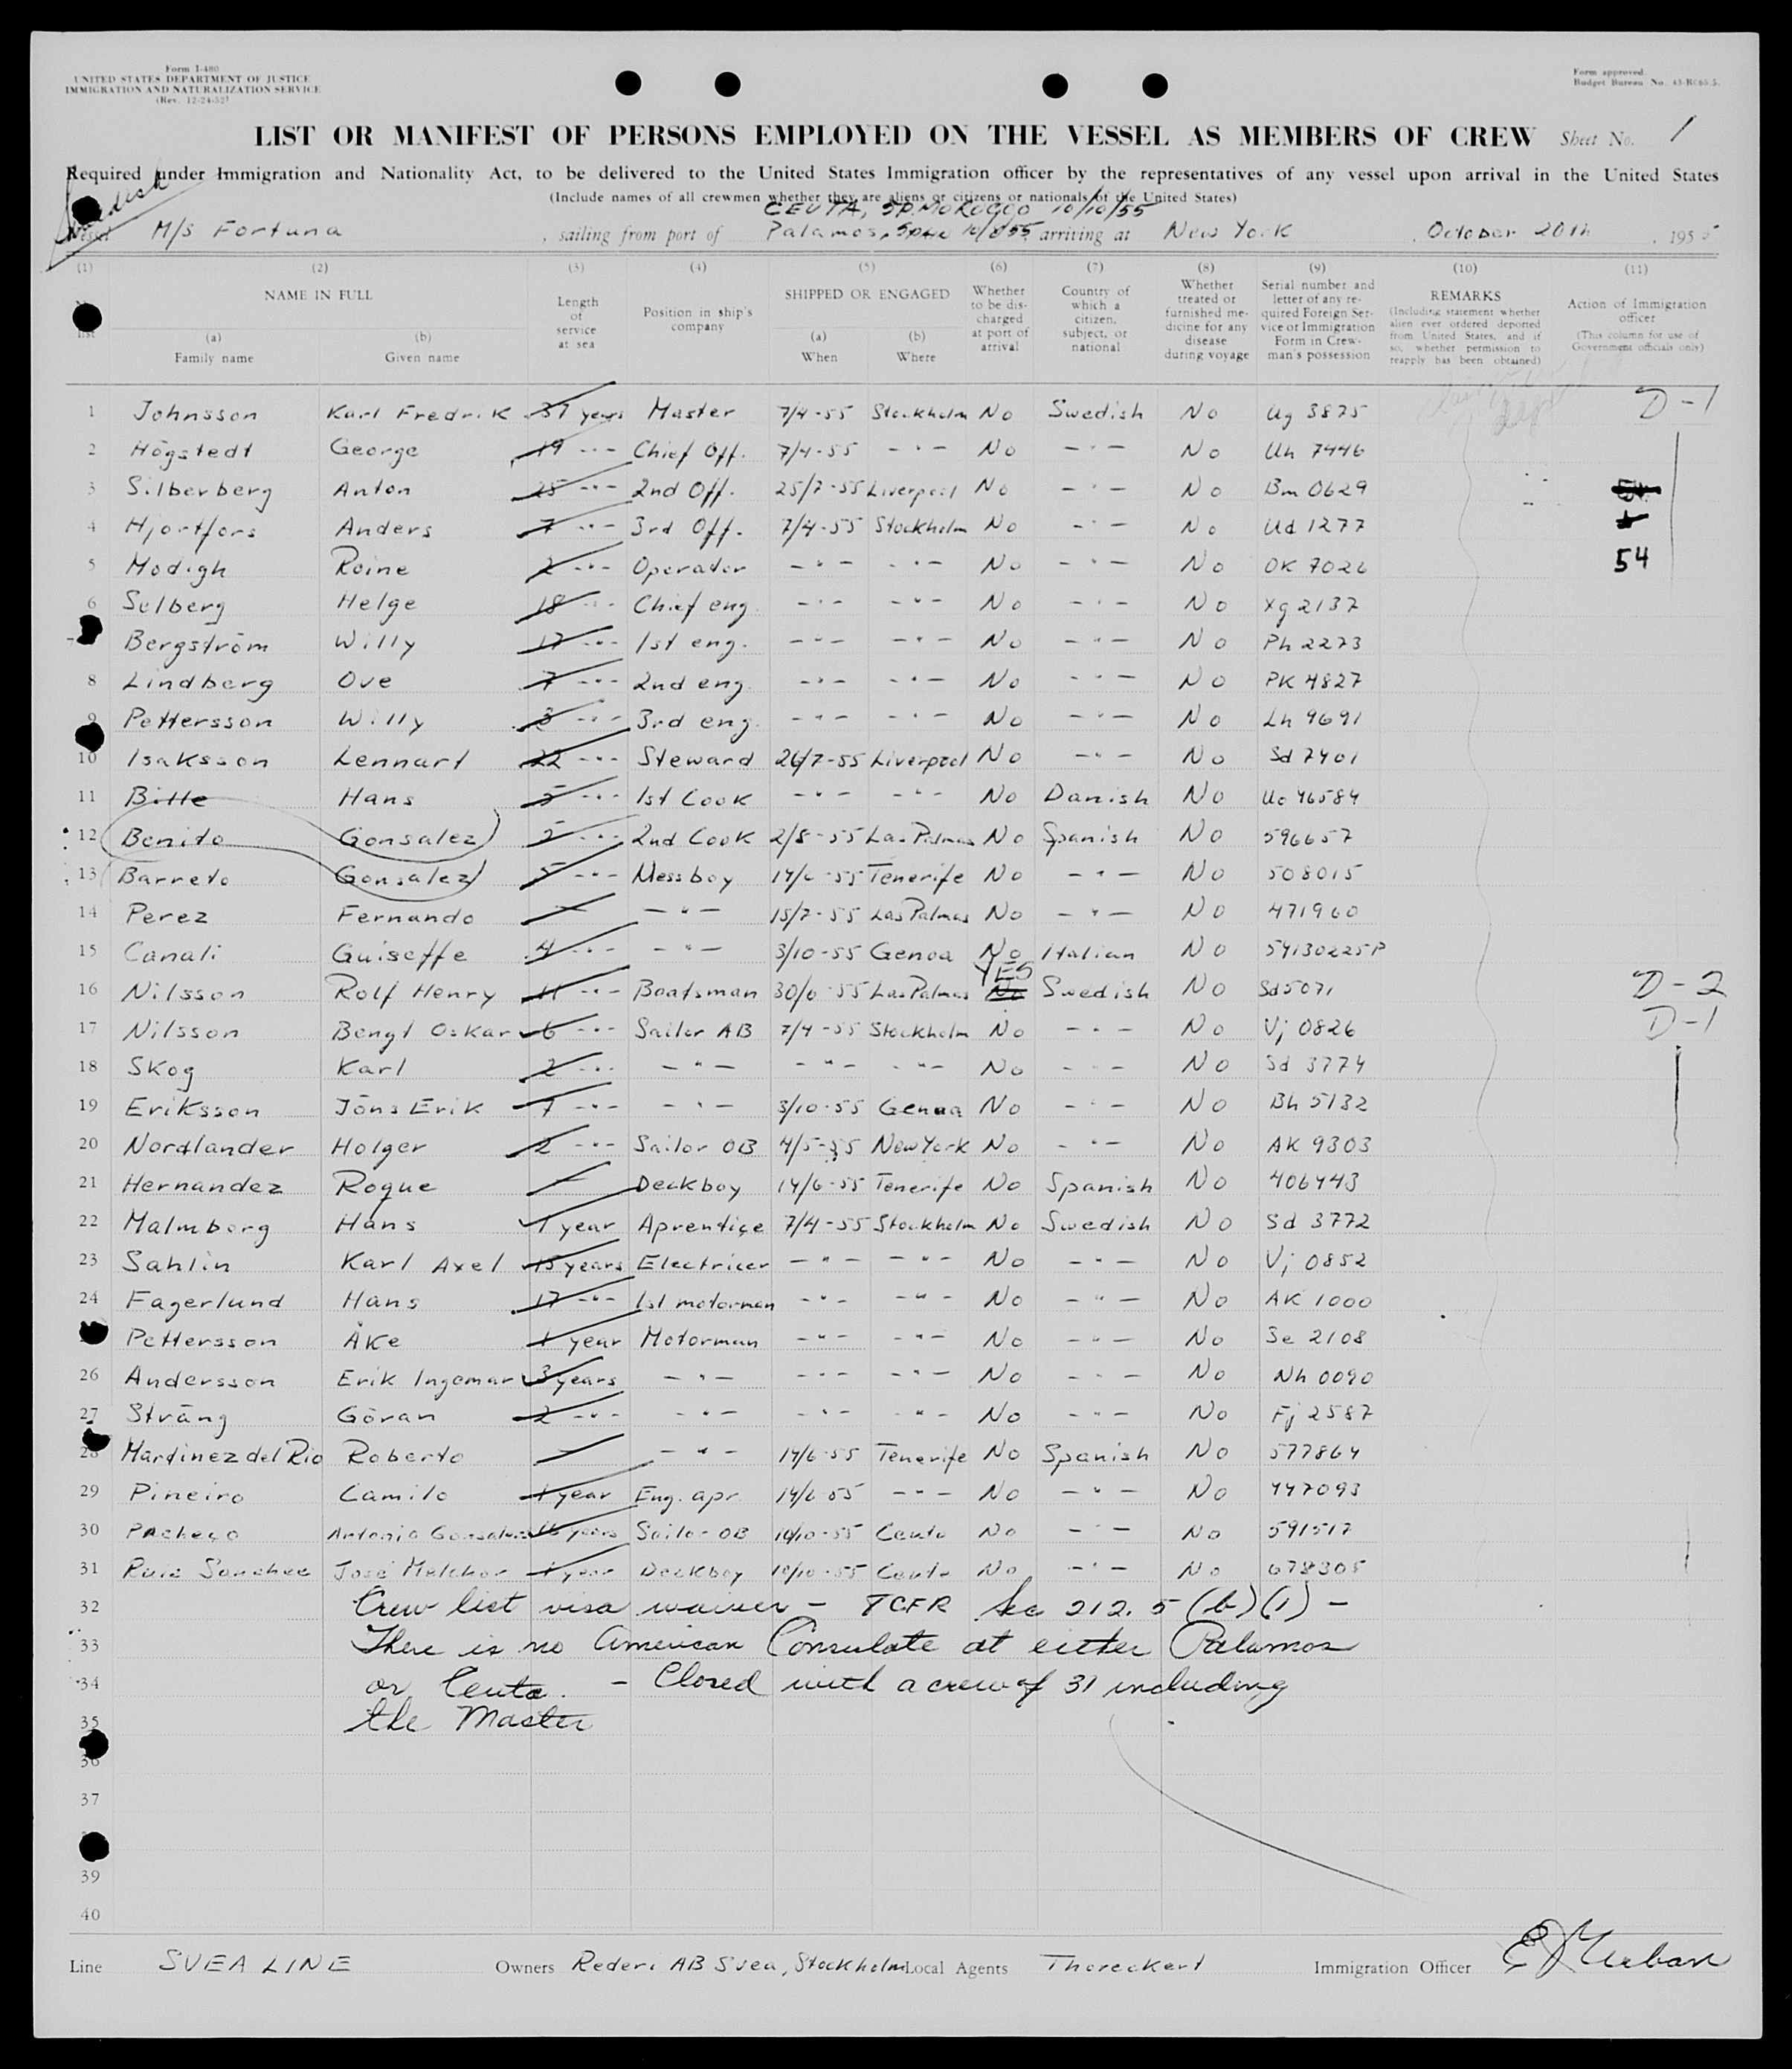 Form I-480
UNITED STATES DEPARTMENT OF JUSTICE
IMMIGRATION AND NATURALIZATION SERVICE
(Rev. 12-24-52)
Form approved.
Budget Bureau No. 43-R065.5.
LIST OR MANIFEST OF PERSONS EMPLOYED ON THE VESSEL AS MEMBERS OF CREW Sheet No. 1
Required under Immigration and Nationality Act, to be delivered to the United States Immigration officer by the representatives of any vessel upon arrival in the United States
(Include names of all crewmen whether they are aliens or citizens or nationals of the United States)
Swedish
CEUTA, SP. MOROCCO 10/10/55
Vessel M/s Fortuna, sailing from port of Palamos, Spain 10/8/55 arriving at New York, October 20th, 1955
(1) (2) (3) (4) (5) (6) (7) (8) (9) (10) (11)
No. list
NAME IN FULL
(a) Family name
(b) Given name
Length of service at sea
Position in ship's company
SHIPPED OR ENGAGED
(a) When
(b) Where
Whether to be discharged at port of arrival
Country of which a citizen, subject, or national
Whether treated or furnished medicine for any disease during voyage
Serial number and letter of any required Foreign Service or Immigration Form in Crewman's possession
REMARKS
(Including statement whether alien ever ordered deported from United States, and if so, whether permission to reapply has been obtained)
Action of Immigration officer
(This column for use of Government officials only)
1 Johnsson Karl Fredrik 37 years Master 7/4-55 Stockholm No Swedish No Ug 3875 D-1
2 Högstedt George 19 -"- Chief Off. 7/4-55 -"- No -"- No Uh 7446
3 Silberberg Anton 25 -"- 2nd Off. 25/7-55 Liverpool No -"- No Bm 0629
4 Hjortfors Anders 7 -"- 3rd Off. 7/4-55 Stockholm No -"- No Ud 1277
5 Modigh Roine 2 -"- Operator -"- -"- No -"- No OK 7026 54
6 Selberg Helge 18 -"- Chief eng. -"- -"- No -"- No Xg 2137
Bergström Willy 17 -"- 1st eng. -"- -"- No -"- No Ph 2273
8 Lindberg Ove 7 -"- 2nd eng. -"- -"- No -"- No PK 4827
9 Pettersson Willy 3 -"- 3rd eng. -"- -"- No -"- No Lh 9691
10 Isaksson Lennart 22 -"- Steward 26/7-55 Liverpool No -"- No Sd 7401
11 Bitte Hans 5 -"- 1st Cook -"- -"- No Danish No Uo 46584
12 Benito Gonsalez 5 -"- 2nd Cook 2/8-55 Las Palmas No Spanish No 596657
13 Barreto Gonsalez 5 -"- Messboy 14/6-55 Tenerife No -"- No 508015
14 Perez Fernando — -"- 15/7-55 Las Palmas No -"- No 471960
15 Canali Guiseffe 4 -"- -"- 3/10-55 Genoa No Italian No 54130225P
16 Nilsson Rolf Henry 11 -"- Boatsman 30/6-55 Las Palmas No YES Swedish No Sd 5071 D-2
17 Nilsson Bengt Oskar 6 -"- Sailor AB 7/4-55 Stockholm No -"- No Vj 0826 D-1
18 Skog Karl 2 -"- -"- -"- -"- No -"- No Sd 3774
19 Eriksson Jöns Erik 7 -"- -"- 3/10-55 Genoa No -"- No Bh 5132
20 Nordlander Holger 2 -"- Sailor OB 4/5-55 New York No -"- No AK 9303
21 Hernandez Roque — Deckboy 14/6-55 Tenerife No Spanish No 406443
22 Malmborg Hans 1 year Aprentice 7/4-55 Stockholm No Swedish No Sd 3772
23 Sahlin Karl Axel 15 years Electricer -"- -"- No -"- No Vj 0852
24 Fagerlund Hans 17 -"- 1st motorman -"- -"- No -"- No AK 1000
Pettersson Åke 1 year Motorman -"- -"- No -"- No Se 2108
26 Andersson Erik Ingemar 3 years -"- -"- -"- No -"- No Nh 0090
27 Sträng Göran 2 -"- -"- -"- -"- No -"- No Fj 2587
28 Martinez del Rio Roberto — -"- 14/6-55 Tenerife No Spanish No 577864
29 Pineiro Camilo 1 year Eng. apr. 14/6 55 -"- No -"- No 447093
30 Pacheco Antonio 16 years Sailor OB 10/10-55 Ceuta No -"- No 591517
31 Ruiz Sanchez José Melchor 1 year Deckboy 10/10-55 Ceuta No -"- No 678305
32 Crew list visa waiver - 8CFR Sec 212.5 (b)(1) -
33 There is no American Consulate at either Palamos
34 or Ceuta. - Closed with a crew of 31 including
35 the Master
36
37
39
40
Line SVEA LINE Owners Rederi AB Svea, Stockholm Local Agents Thoreckert Immigration Officer